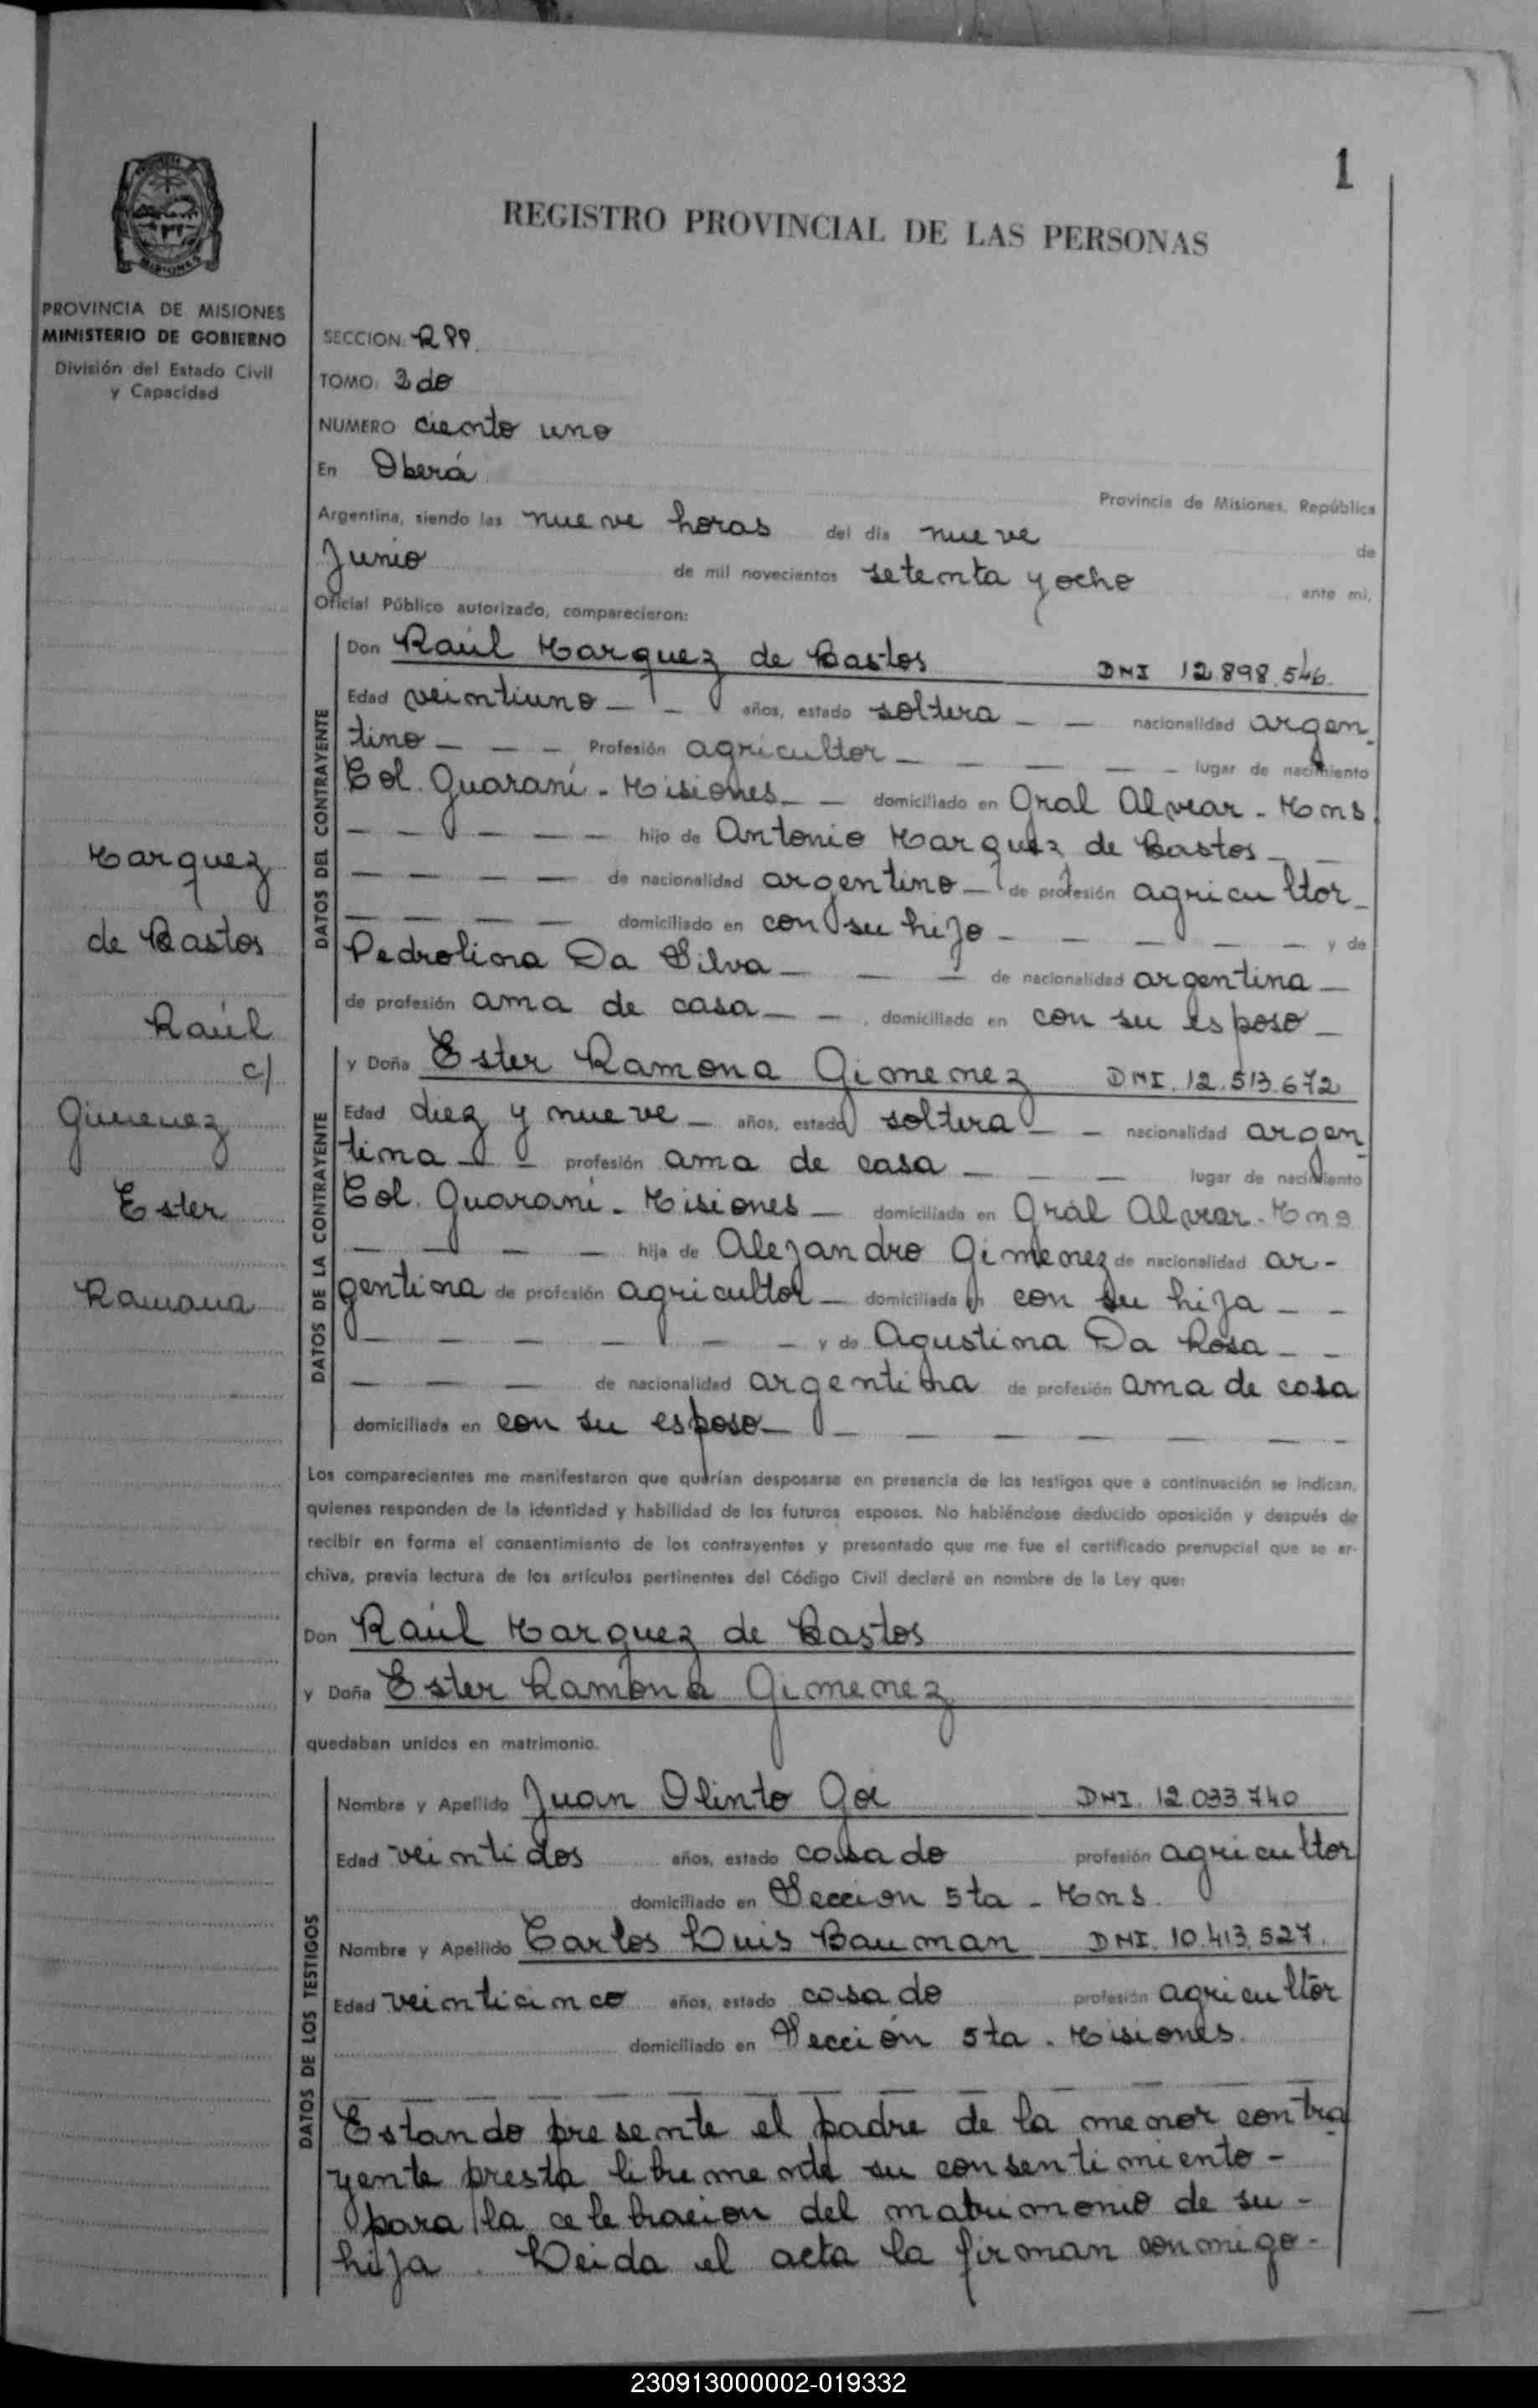 1
REGISTRO PROVINCIAL DE LAS PERSONAS
MISIONES
PROVINCIA DE MISIONES
MINISTERIO DE GOBIERNO
División del Estado Civil
y Capacidad
SECCION: RPP.
TOMO: 2do
NUMERO ciento uno
En Oberá
Provincia de Misiones, República
Argentina, siendo las nueve horas del día nueve de
Junio de mil novecientos setenta y ocho ante mi,
Oficial Público autorizado, comparecieron:
DATOS DEL CONTRAYENTE
Don Raúl Marquez de Bastos DNI 12.898.546.
Edad veintiuno años, estado soltera nacionalidad argen
tino Profesión agricultor lugar de nacimiento
Col. Guaraní - Misiones domiciliado en Gral Alvear - Mns.
hijo de Antonio Marquez de Bastos
de nacionalidad argentino de profesión agricultor
domiciliado en con su hijo y de
Pedrolina Da Silva de nacionalidad argentina
de profesión ama de casa domiciliado en con su esposo
Marquez
de Bastos
Raúl
c/
Gimenez
Ester
Ramona
DATOS DE LA CONTRAYENTE
y Doña Ester Ramona Gimenez DNI. 12.513.672
Edad diez y nueve años, estado soltera nacionalidad argen
tina profesión ama de casa lugar de nacimiento
Col. Guaraní - Misiones domiciliada en Gral Alvear - Mns
hija de Alejandro Gimenez de nacionalidad ar-
gentina de profesión agricultor domiciliada en con su hija
y de Agustina Da Rosa
de nacionalidad argentina de profesión ama de casa
domiciliada en con su esposo
Los comparecientes me manifestaron que querían desposarse en presencia de los testigos que a continuación se indican,
quienes responden de la identidad y habilidad de los futuros esposos. No habiéndose deducido oposición y después de
recibir en forma el consentimiento de los contrayentes y presentado que me fue el certificado prenupcial que se ar-
chiva, previa lectura de los artículos pertinentes del Código Civil declaré en nombre de la Ley que:
Don Raúl Marquez de Bastos
y Doña Ester Ramona Gimenez
quedaban unidos en matrimonio.
DATOS DE LOS TESTIGOS
Nombre y Apellido Juan Olinto Goi DNI. 12.033.740
Edad veintidos años, estado casado profesión agricultor
domiciliado en Seccion 5ta - Mns.
Nombre y Apellido Carlos Luis Bauman DNI. 10.413.527.
Edad veinticinco años, estado casado profesión agricultor
domiciliado en Sección 5ta - Misiones.
Estando presente el padre de la menor contra
yente presta libremente su consentimiento -
para la celebracion del matrimonio de su -
hija. Leida el acta la firman conmigo -
230913000002-019332